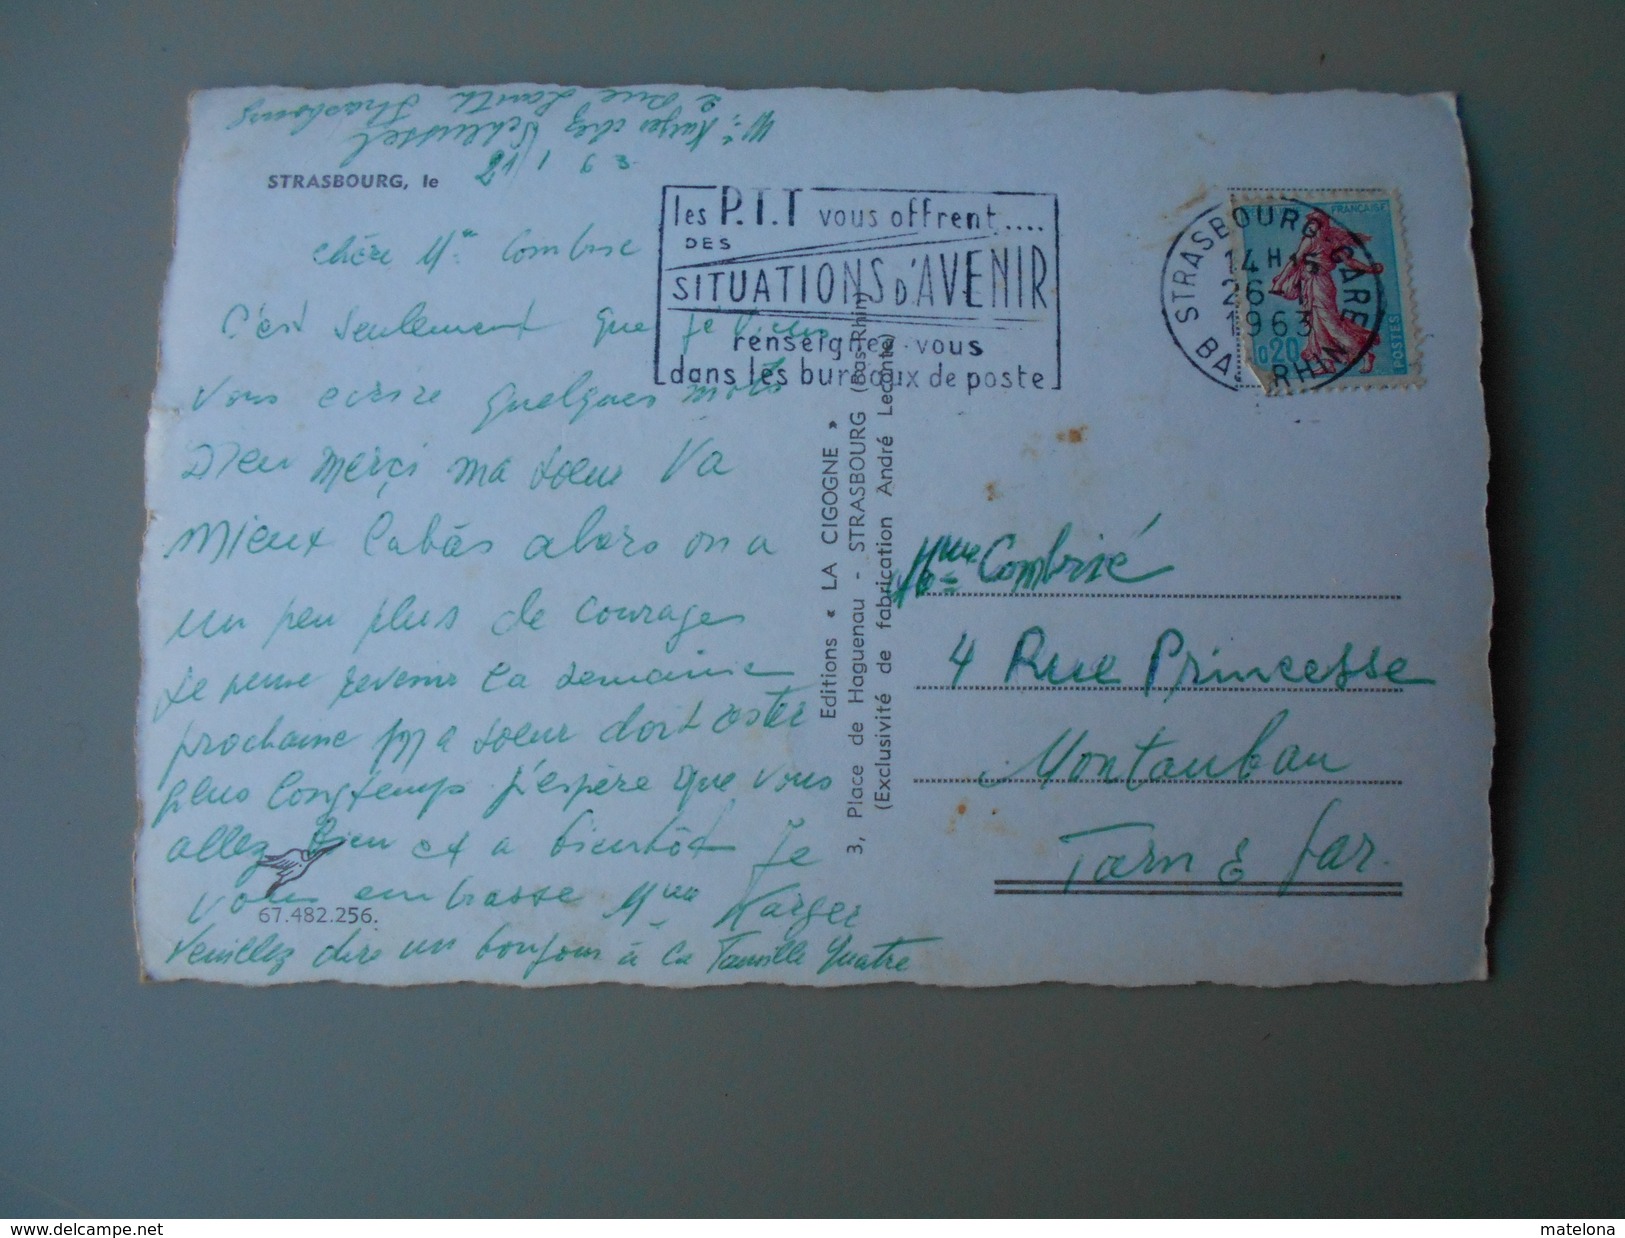 Mme Karger chez Schlussel
2 Rue Lauth Strasbourg
STRASBOURG, le 1 63
Chère Mme Combrise
C'est seulement que je viens
vous ecrire quelques mots
Dieu merçi ma soeur Va
mieux labàs alors on a
un peu plus de courages
Je pense revenir la semaine
prochaine ma soeur doit rester
plus longtemps j'espère que vous
allez Bien et a bientôt Je
vous embrasse Mme Karger
Veuillez dire un bonjour à la Famille Quatre
67.482.256.
Editions « LA CIGOGNE »
3, Place de Haguenau - STRASBOURG (Bas-Rhin)
(Exclusivité de fabrication André Leconte)
les P.T.T vous offrent....
DES
SITUATIONS D'AVENIR
renseignez-vous
dans les bureaux de poste
STRASBOURG GARE
14 H 15
26-1
1963
BAS RHIN
FRANÇAISE
0,20
POSTES
Mme Combrisé
4 Rue Princesse
Montauban
Tarn & Gar.
www.delcampe.net
matelona